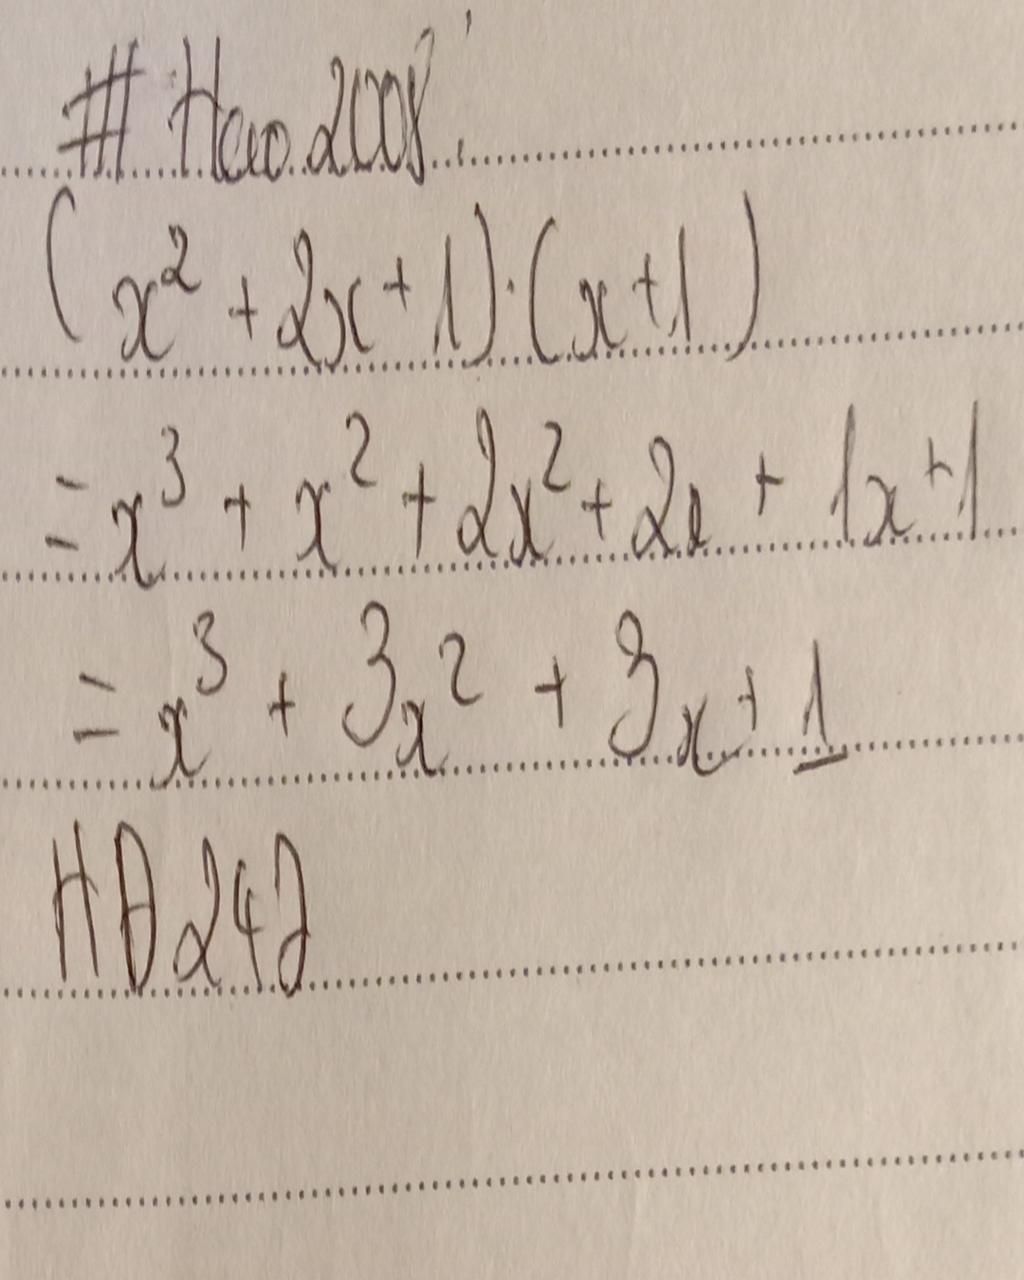 # Hao2008
(x² + 2x + 1) · (x + 1)
= x³ + x² + 2x² + 2x + 1x + 1
= x³ + 3x² + 3x + 1
HD242